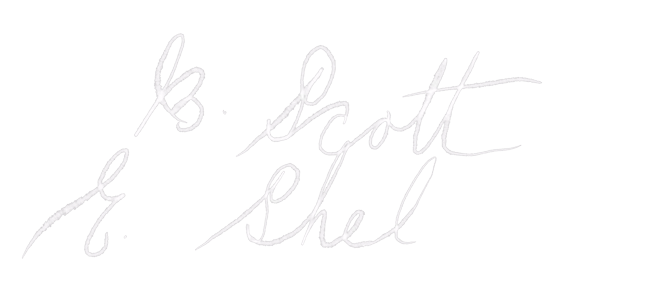 B. Scott
E. Shel